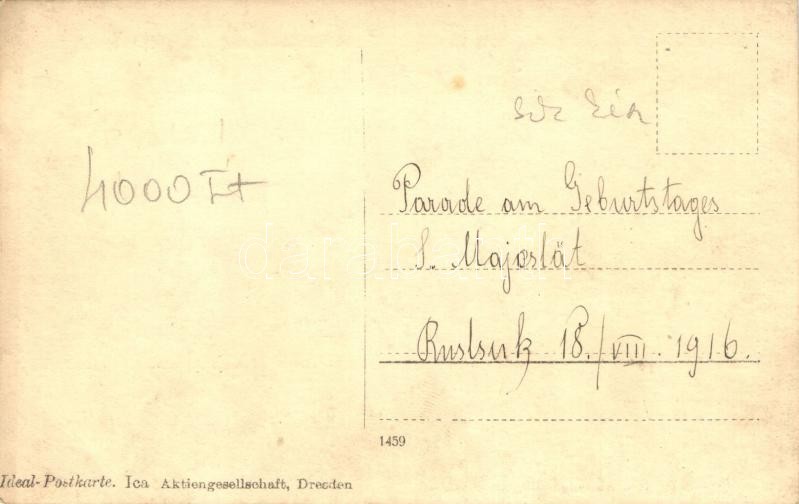 4000 Ft
Parade am Geburtstages
S. Majestät
Rustsuk 18./VIII. 1916.
1459
Ideal-Postkarte. Ica Aktiengesellschaft, Dresden